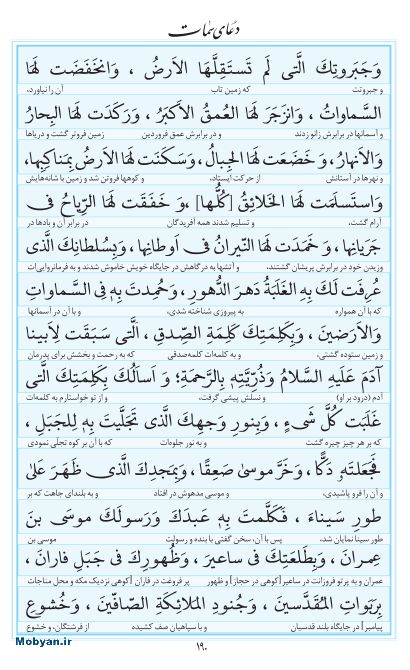 دعای سمات
وَجَبَرُوتِكَ الَّتى لَم تَستَقِلَّهَا الاَرضُ ، وَانخَفَضَت لَهَا
و جبروتت که زمین تاب آن را نیاورد،
السَّماواتُ ، وَانزَجَرَ لَهَا العُمقُ الاَكبَرُ ، وَرَكَدَت لَهَا البِحارُ
و آسمانها در برابرش زانو زدند و در برابرش عمق فروردین زمین فروتر گشت و دریاها
وَالاَنهارُ، وَخَضَعَت لَهَا الجِبالُ، وَسَكَنَت لَهَا الاَرضُ بِمَناكِبِها،
و نهرها در آستانش از حرکت ایستاد، و کوهها فروتن شد و زمین با شانه‌هایش
وَاستَسلَمَت لَهَا الخَلائِقُ [كُلُّها] ،وَ خَفَقَت لَهَا الرِّياحُ فى
آرام گشت، و تسلیم شدند همه آفریدگان در برابر آن و بادها در
جَرَيانِها، وَ خَمَدَت لَهَا النّيرانُ فى اَوطانِها، وَبِسُلطانِكَ الَّذى
وزیدن خود در برابرش پریشان گشتند، و آتشها به درگاهش در جایگاه خویش خاموش شدند و به فرمانروایی‌ات
عُرِفَت لَكَ بِهِ الغَلَبَةُ دَهرَ الدُّهورِ، وَحُمِدتَ بِهِ فِى السَّماواتِ
که با آن همواره به پیروزی شناخته شدی، و با آن در آسمانها
وَالاَرَضينَ، وَبِكَلِمَتِكَ كَلِمَةِ الصِّدقِ ، الَّتى سَبَقَت لِاَبينا
و زمین ستوده گشتی، و به کلمه‌ات کلمه‌صدقی که به رحمت و بخشش برای پدرمان
آدَمَ عَلَيهِ السَّلامُ وَذُرِّيَّتِهِ بِالرَّحمَةِ؛ وَ اَسأَلُكَ بِكَلِمَتِكَ الَّتى
آدم (درود بر او) و نسلش پیشی گرفت، و از تو خواستارم به کلمه‌ات
غَلَبَت كُلَّ شَىءٍ ، وَبِنورِ وَجهِكَ الَّذى تَجَلَّيتَ بِهِ لِلجَبَلِ ،
که بر هر چیز چیره گشت و به نور جلوه‌ات که با آن بر کوه تجلّی نمودی
فَجَعَلتَهُ دَكًّا، وَخَرَّ موسى صَعِقًا، وَبِمَجدِكَ الَّذى ظَهَرَ عَلى
و آن را فرو پاشیدی، و موسی مدهوش در افتاد و به بلندای جاهت که بر
طورِ سَيناءَ ، فَكَلَّمتَ بِهِ عَبدَكَ وَرَسولَكَ موسَى بنَ
طور سینا نمایان شد، پس با آن، سخن گفتی با بنده و رسولت موسی بن
عِمرانَ، وَبِطَلعَتِكَ فى ساعيرَ، وَظُهورِكَ فى جَبَلِ فارانَ ،
عمران و به پرتو فروزانت در ساعیر [کوهی در حجاز] و ظهور پر فروغت در فاران [کوهی نزدیک مکه و محل مناجات
بِرَبَواتِ المُقَدَّسينَ ، وَجُنودِ المَلائِكَةِ الصّافّينَ ، وَخُشوعِ
پیامبر] در جایگاه بلند قدسیان و با سپاهیان صف کشیده از فرشتگان، و خشوع
۱۹۰
Mobyan.ir